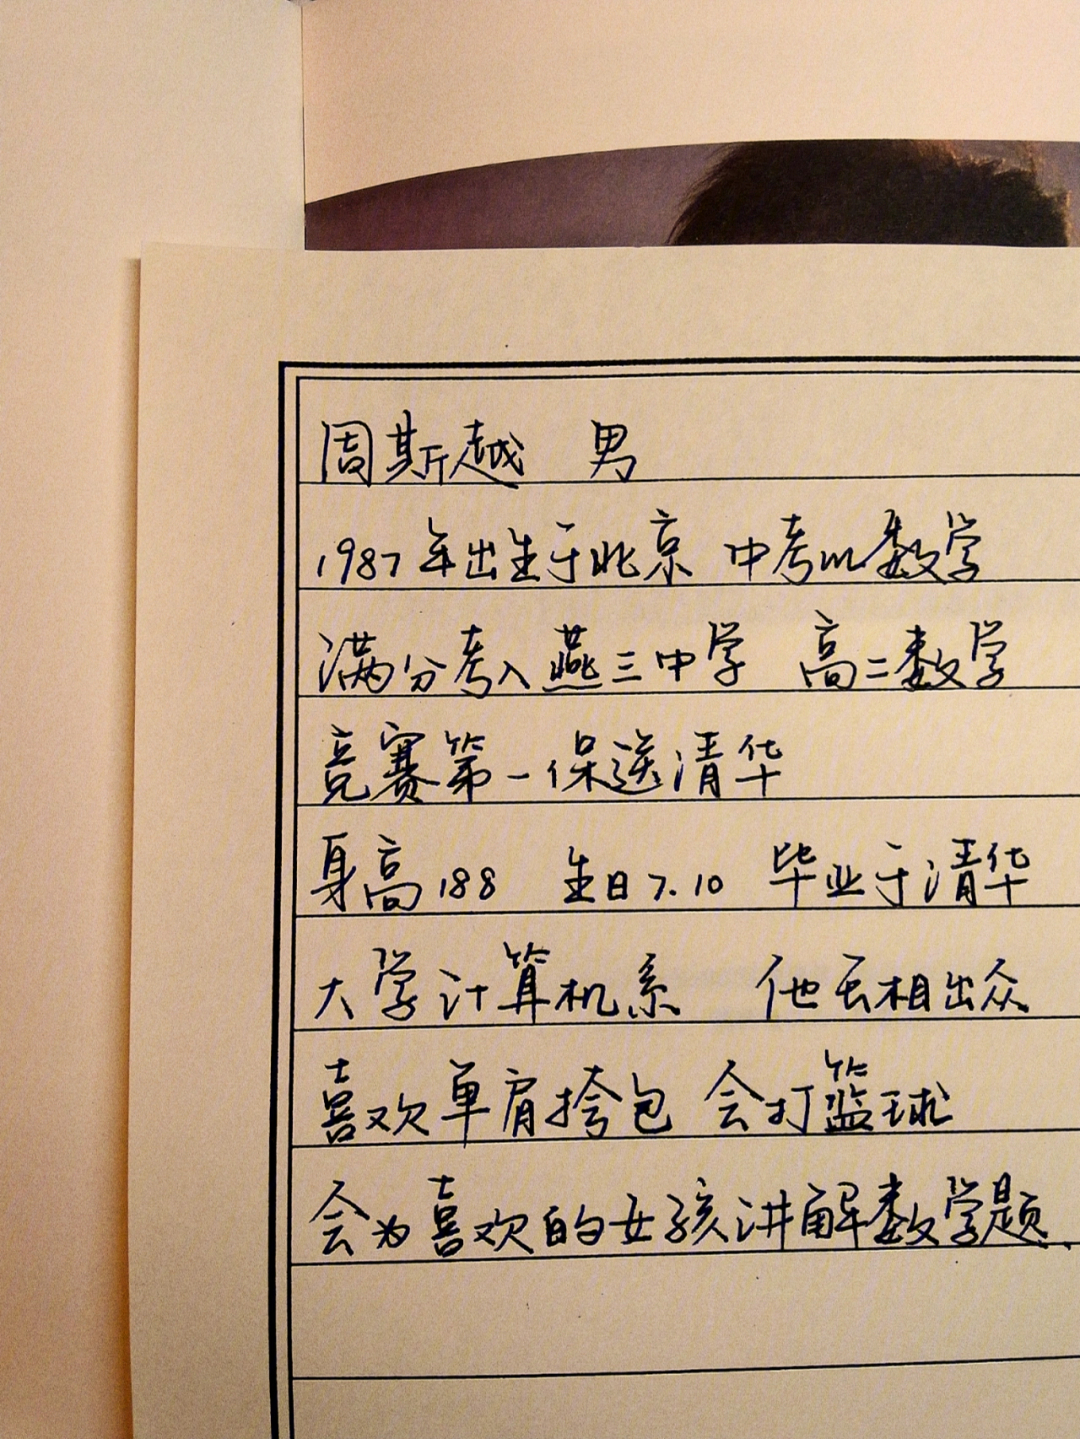 周斯越 男
1987年出生于北京 中考以数学
满分考入燕三中学 高二数学
竞赛第一保送清华
身高188 生日7.10 毕业于清华
大学计算机系 他长相出众
喜欢单肩挎包 会打篮球
会为喜欢的女孩讲解数学题、